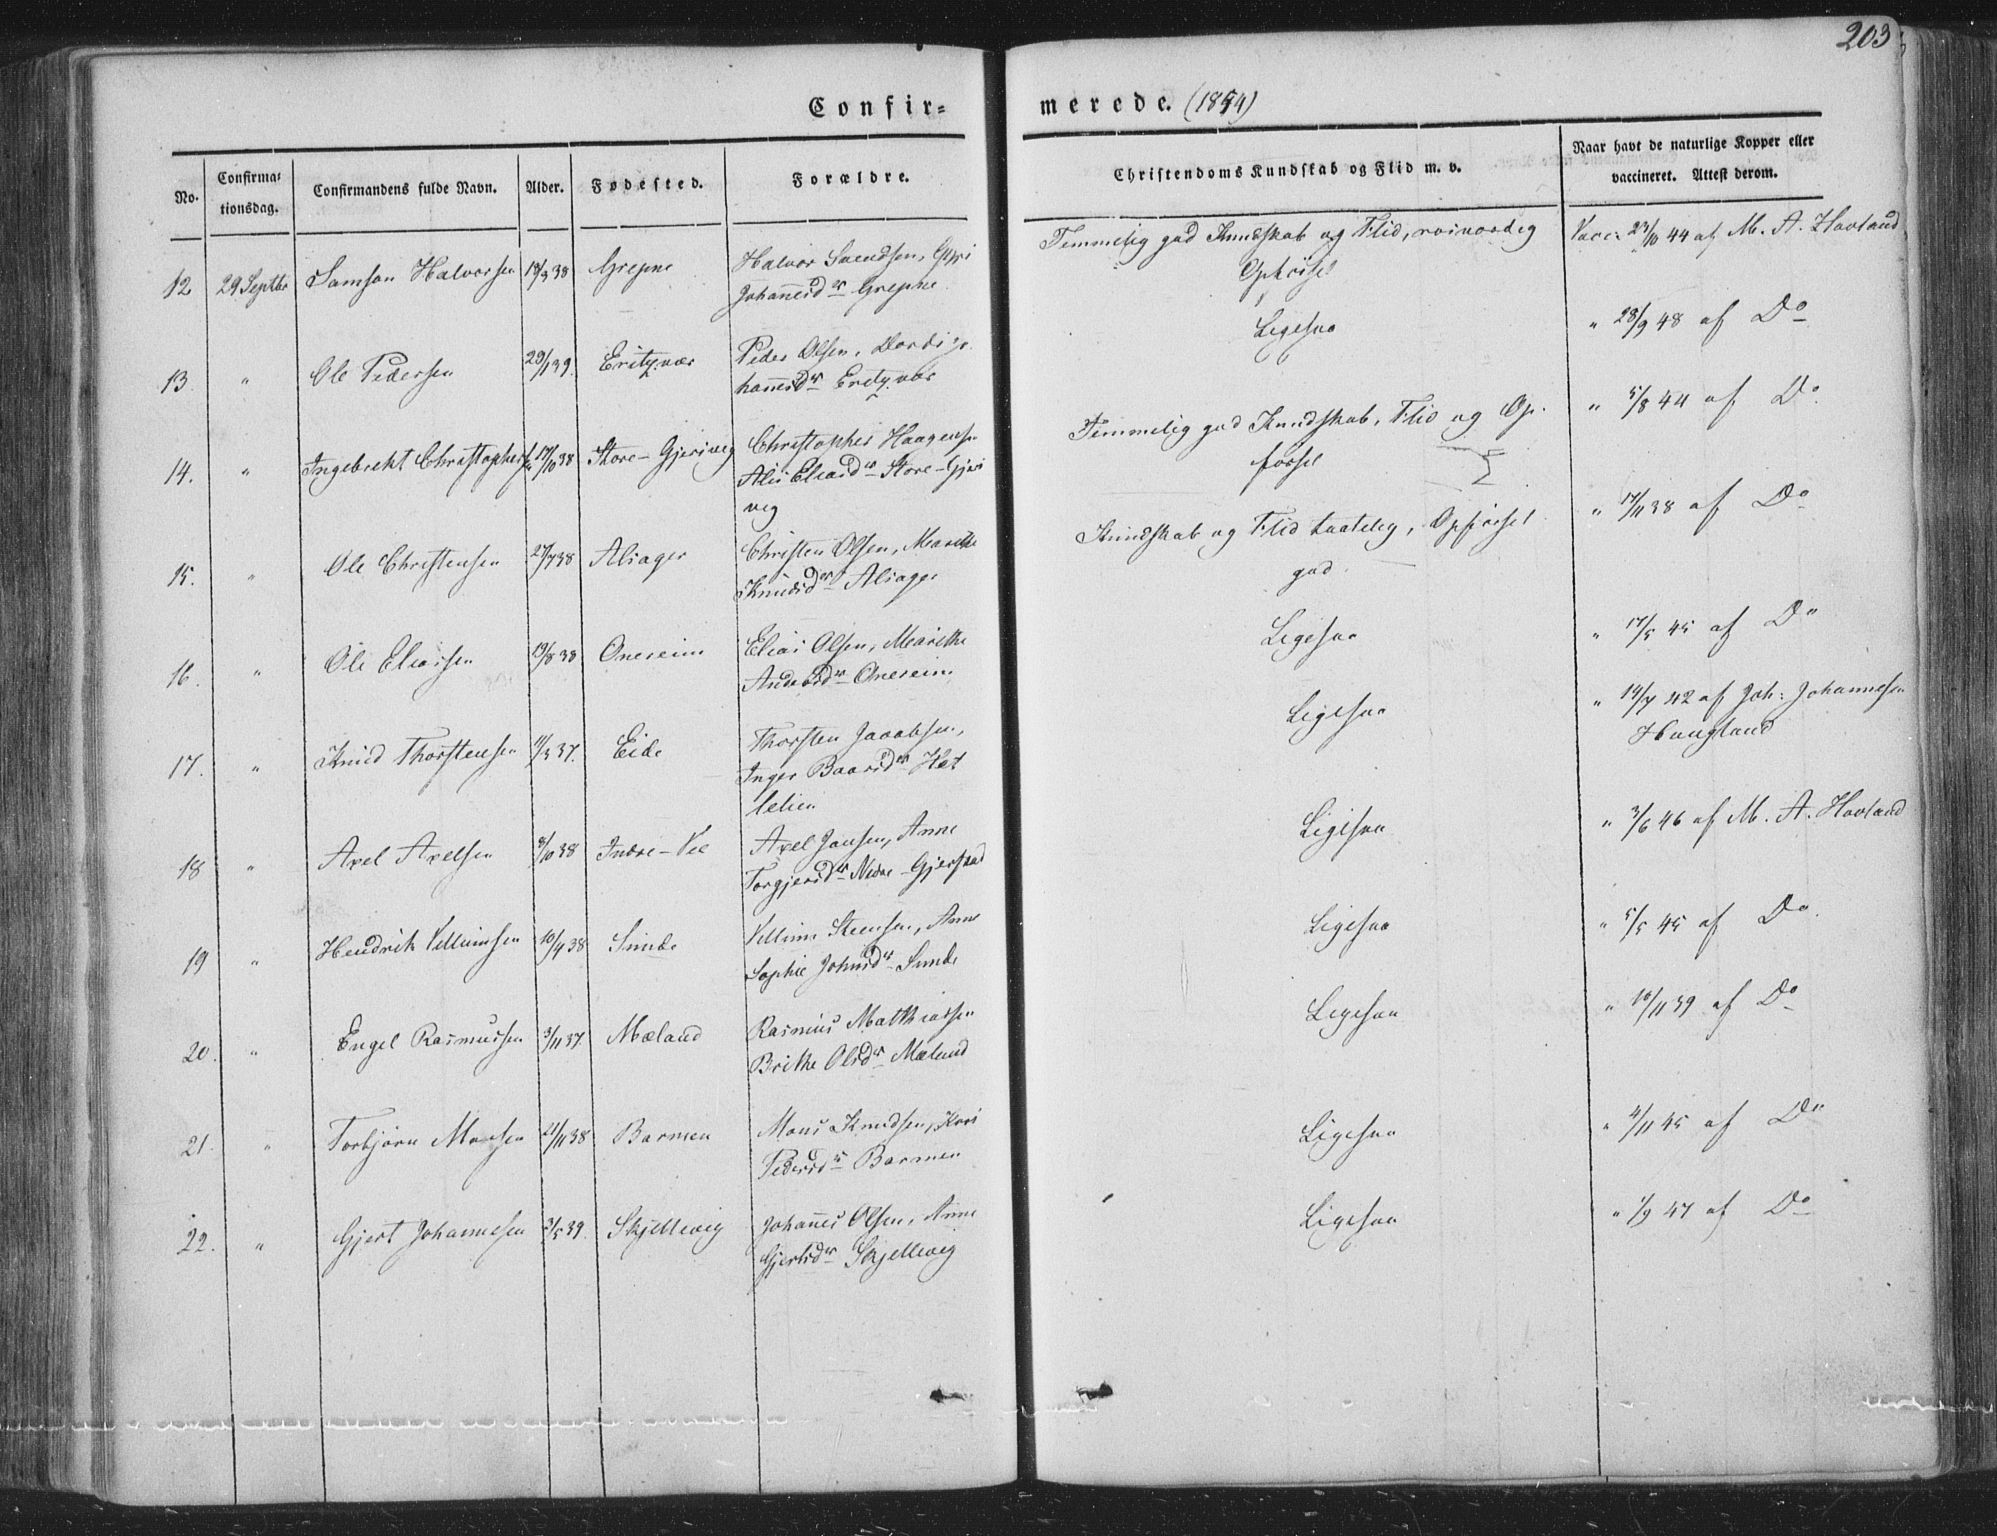 203
Confir=
merede. (1854)
No.
Confirma=
tionsdag.
Confirmandens fulde Navn.
Alder.
Fødested.
Forældre.
Christendoms Kundskab og Flid m. v.
Naar havt de naturlige Kopper eller
vaccineret. Attest derom.
12 29 Septbr Samson Halvorsen 18/3 38 Grepne Halvor Svendsen, Guri
Johannesdr Grephe
Temmelig god Kundskab og Flid, roesværdig
Opførsel
Vacc: 23/10 44 af M. A. Hovland
13. " Ole Pedersen 29/1 39. Peder Olsen, Dordi Jo
hannesdr
Ligesaa
" 28/9 48 af Do
14. " Ingebreht Christophersen 17/10 38 Store-Gjerivig Christopher Haagensen
Alis Eliasdr Store-Gjeri
vig
Temmelig god Kundskab, Flid og Op-
førsel
" 5/8 44 af Do
15. " Ole Christensen 27/7 38 Alsager Christen Olsen, Marithe
Knudsdr Alsager
Kundskab og Flid taalelig, Opførsel
god.
" 17/11 38 af Do
16. " Ole Eliassen 19/8 38 Onereim Elias Olsen, Marithe
Andersdr Onereim
Ligesaa
" 17/5 45 af Do
17. " Knud Thorstensen 11/3 37. Eide Thorsten Jacobsen,
Inger Baarsdr Het
lelien
Ligesaa
" 14/7 42 af Joh: Johannesen
Haugland
18 " Axel Axelsen 8/10 38 Indre-Vee Axel Jansen, Anne
Torgjersdr Nedre-Gjerstad
Ligesaa
" 3/6 46 af M. A. Hovland
19 " Hendrik Villumsen 10/4 38 Sunde Villum Steensen, Anne
Sophie Johnsdr Sunde
Ligesaa
" 5/5 45 af Do.
20. " Engel Rasmussen 3/11 37. Mæland Rasmus Matthiassen
Brithe Olsdr Mæland
Ligesaa
" 10/11 39 af Do
21. " Torbjørn Monsen 21/11 38 Barmen Mons Knudsen, Kari
Pedersdr Barmen
Ligesaa
" 4/11 45 af Do
22. " Gjert Johannesen 2/5 39. Skjellevig Johannes Olsen, Anne
Gjertsdr Skjellevig
Ligesaa
" 1/9 47 af Do